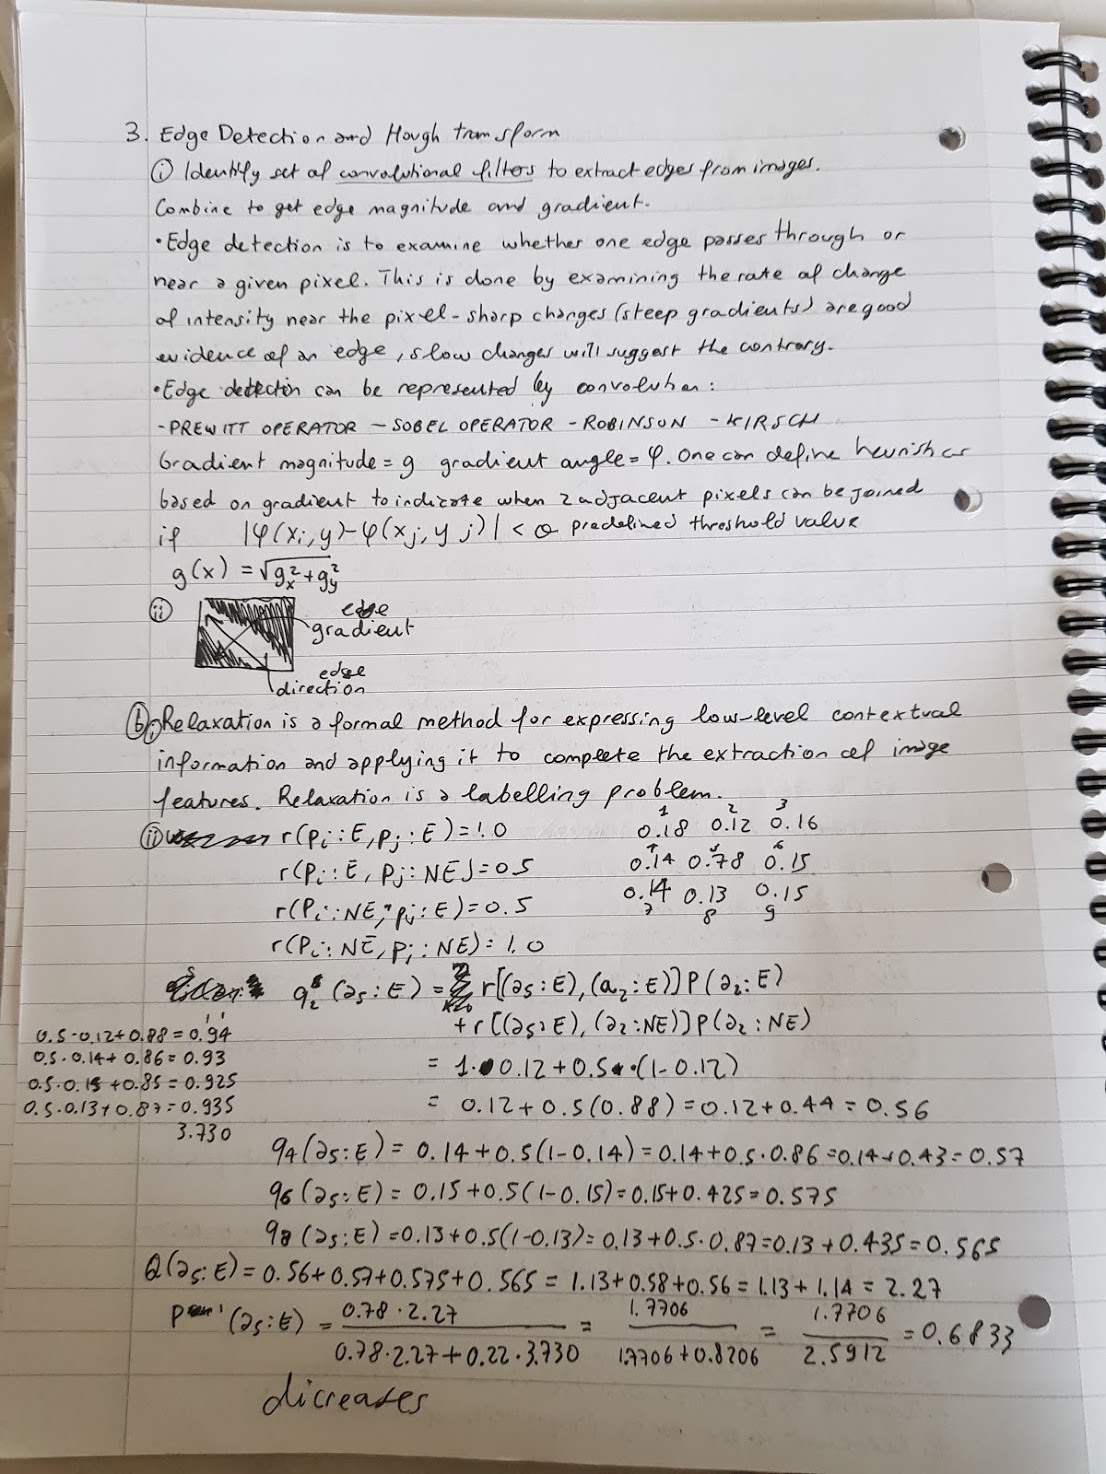 3. Edge Detection and Hough transform
(i) Identify set of convolutional filters to extract edges from images.
Combine to get edge magnitude and gradient.
•Edge detection is to examine whether one edge passes through or
near a given pixel. This is done by examining the rate of change
of intensity near the pixel - sharp changes (steep gradients) are good
evidence of an edge, slow changes will suggest the contrary.
•Edge detection can be represented by convolution:
-PREWITT OPERATOR -SOBEL OPERATOR -ROBINSON -KIRSCH
Gradient magnitude = g gradient angle = φ. One can define heuristics
based on gradient to indicate when 2 adjacent pixels can be joined
if |φ(xi,y)-φ(xj,yj)| < θ predefined threshold value
g(x) = √gx²+gy²
(ii)
edge
gradient
edge
direction
(b)i) Relaxation is a formal method for expressing low-level contextual
information and applying it to complete the extraction of image
features. Relaxation is a labelling problem.
(ii) r(pi:E,pj:E)=1.0
r(pi:E,pj:NE)=0.5
r(pi:NE,pj:E)=0.5
r(pi:NE,pj:NE)=1.0
1 2 3
0.18 0.12 0.16
4 5 6
0.14 0.78 0.15
0.14 0.13 0.15
7 8 9
q2(a5:E) = r[(a5:E),(a2:E)]P(a2:E)
+r[(a5:E),(a2:NE)]P(a2:NE)
= 1·0.12+0.5·(1-0.12)
= 0.12+0.5(0.88)=0.12+0.44=0.56
0.5·0.12+0.88=0.94
0.5·0.14+0.86=0.93
0.5·0.15+0.85=0.925
0.5·0.13+0.87=0.935
3.730
q4(a5:E)= 0.14+0.5(1-0.14)=0.14+0.5·0.86=0.14+0.43=0.57
q6(a5:E)= 0.15+0.5(1-0.15)=0.15+0.425=0.575
q8(a5:E)=0.13+0.5(1-0.13)=0.13+0.5·0.87=0.13+0.435=0.565
Q(a5:E)=0.56+0.57+0.575+0.565= 1.13+0.58+0.56=1.13+1.14=2.27
P'(a5:E) = 0.78·2.27 / 0.78·2.27+0.22·3.730 = 1.7706 / 1.7706+0.8206 = 1.7706 / 2.5912 = 0.6833
dicreases